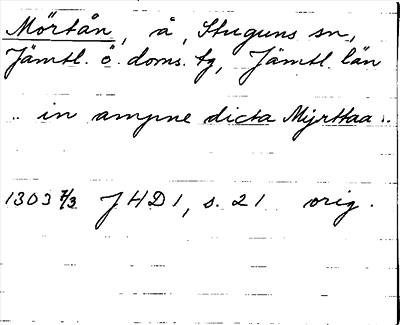 Mörtån, å, Stuguns sn,
Jämtl. ö. doms. tg, Jämtl. län
.. in ampne dicta Myrttaa ..
1303 7/3 JHD 1, s. 21 orig.